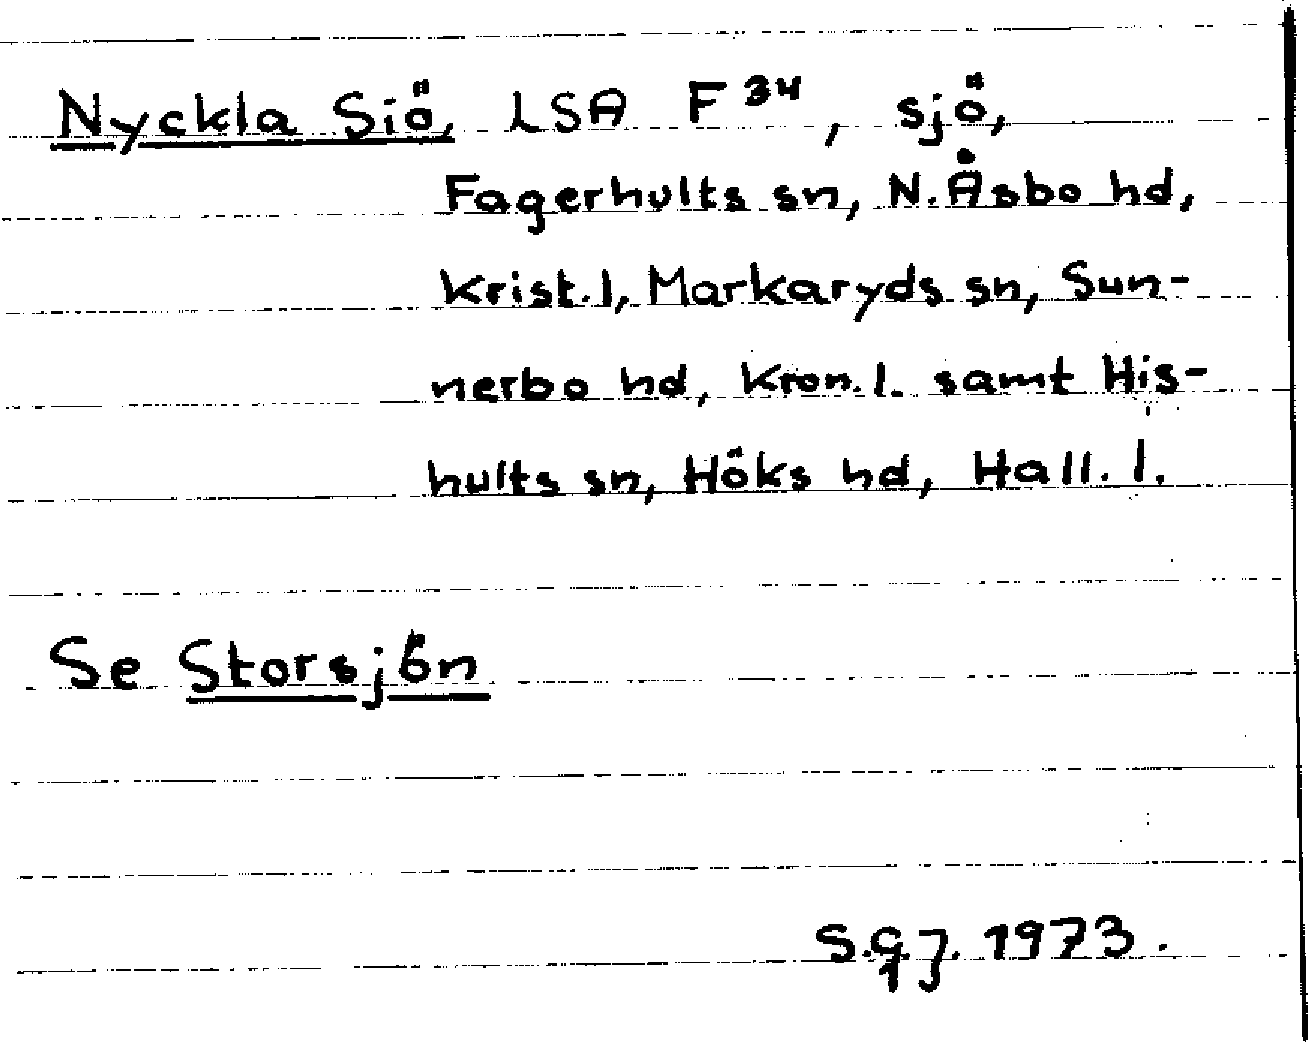 Nyckla Siö, LSA F 34, sjö,
Fagerhults sn, N. Åsbo hd,
Krist. l, Markaryds sn, Sun-
nerbo hd, Kron. l. samt His-
hults sn, Höks hd, Hall. l.
Se Storsjön
S.g.J. 1973.